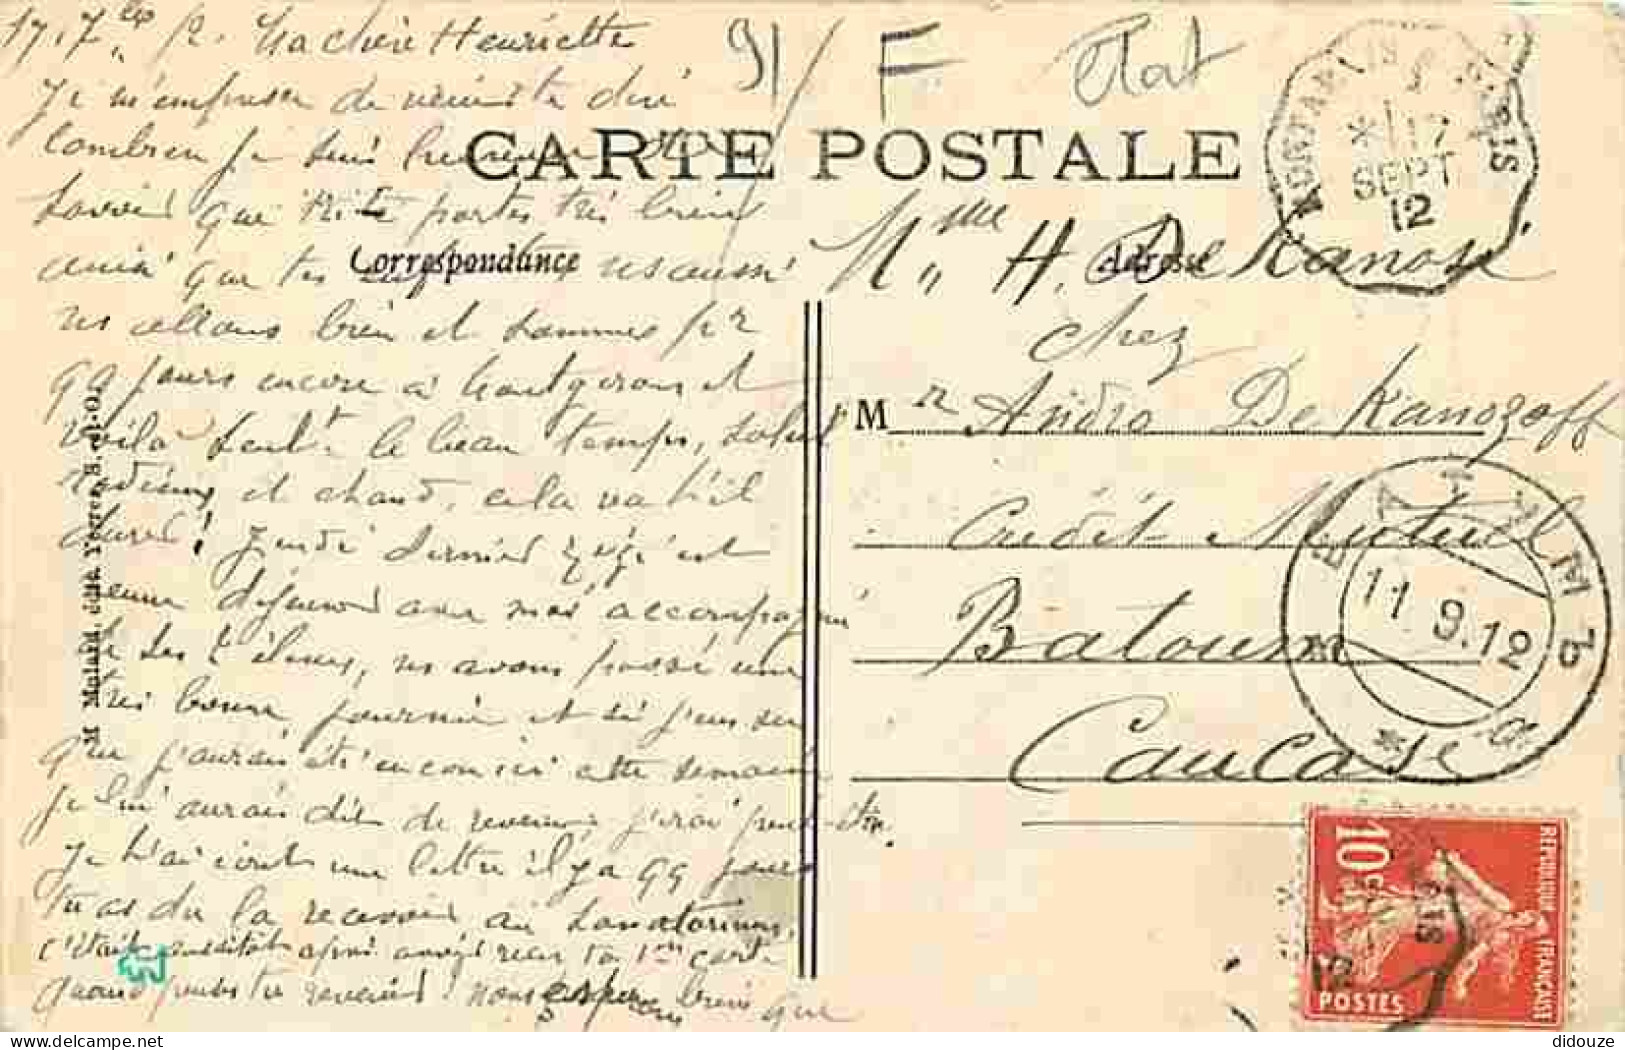 17. 7bre 12. Ma chère Henriette
Je m'empresse de venir te dire
combien je suis heureuse de
savoir que tu te portes très bien
ainsi que tes ns aussi
ns allons bien et sommes pr
qq jours encore à Montgeron et
voilà seult le beau temps, soleil
radieux et chaud, cela va t-il
durer! Jeudi dernier est
venue déjeuner avec moi accompagnée
de ses élèves, ns avons passé une
très bonne journée et si j'eus su
que j'aurais été encore ici cette semaine
je lui aurais dit de revenir, j'irai peut-être.
Je t'ai écrit une lettre il y a qq jours
tu as du la recevoir au sanatorium,
c'était aussitôt après avoir reçu ta 1ère carte
quand penses tu revenir? nous espérons bien que
91
F
Etat
CARTE POSTALE
Correspondance
Adresse
Mme H. De Kanossé
chez
M r Andro De Kanozoff
Crédit Mutuel
Batoum
Caucase
17
SEPT
12
БАТУМЪ
11 9.12
10c
REPUBLIQUE FRANÇAISE
POSTES
Mulard, édit. Yerres, S.-&-O.
didouze